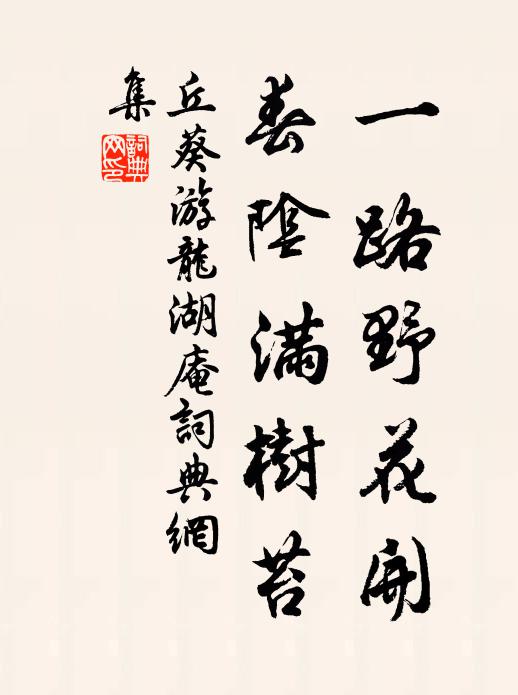 一路野花開
春陰滿樹苔
丘葵游龍湖庵詞典網
集
詞典
网印